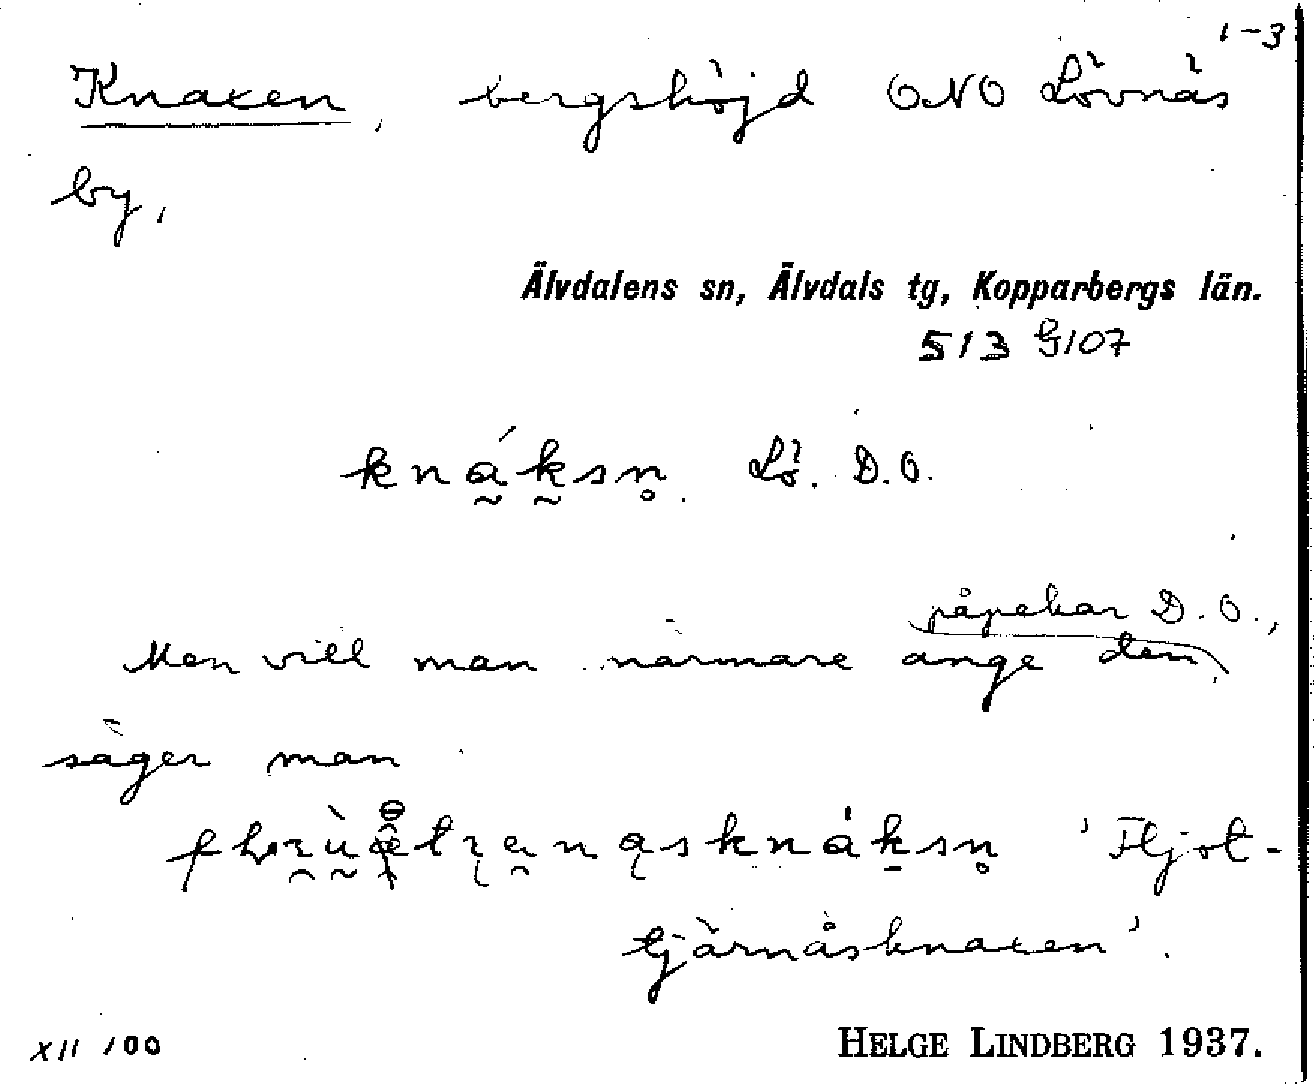 1-3
Knaxen, bergshöjd ONO Lövnäs
by,
Älvdalens sn, Älvdals tg, Kopparbergs län.
513 G107
knáksn̥. Lö. D.O.
påpekar D.O.,
Men vill man närmare ange den,
säger man
'Fljot-
tjärnåsknaxen'.
XII 100
HELGE LINDBERG 1937.